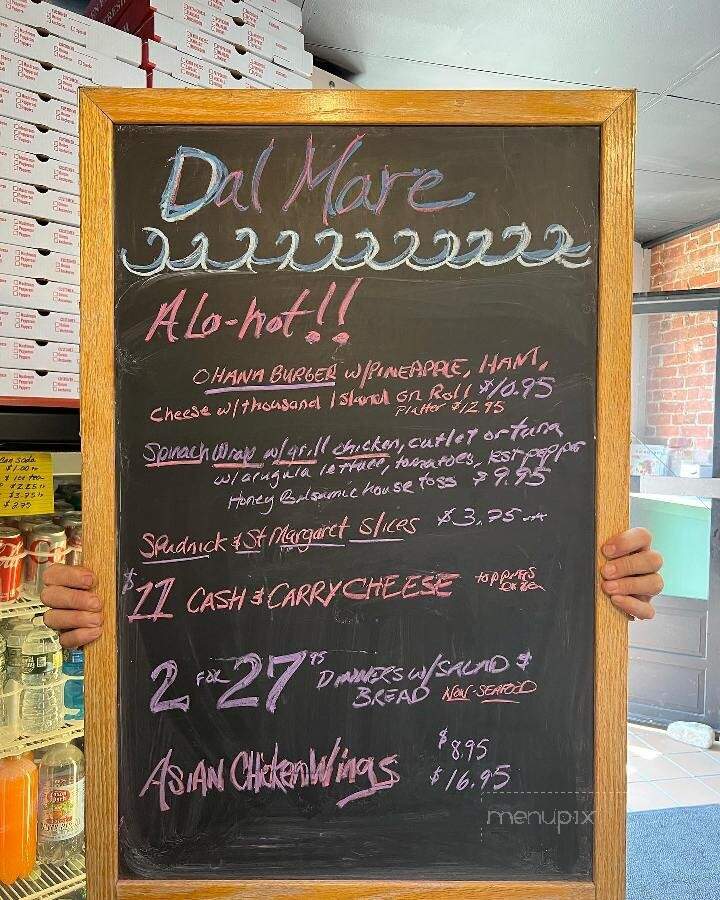 Dal Mare
Alo-hot!!
OHANA BURGER w/PINEAPPLE, HAM,
Cheese w/thousand Island on Roll $10.95
Platter $12.95
Spinach Wrap w/grill chicken, cutlet or tuna
w/arugula lettuce, tomatoes, rst pepper
Honey Balsamic house toss $9.95
Spudnick & St Margaret Slices $3.75
$11 CASH & CARRY CHEESE toppings extra
2 FOR 27.95 DINNERS w/SALAD &
BREAD NON-SEAFOOD
ASIAN Chicken Wings $8.95
$16.95
menupix
can soda
$1.00
$2.25
$3.75
$2.75